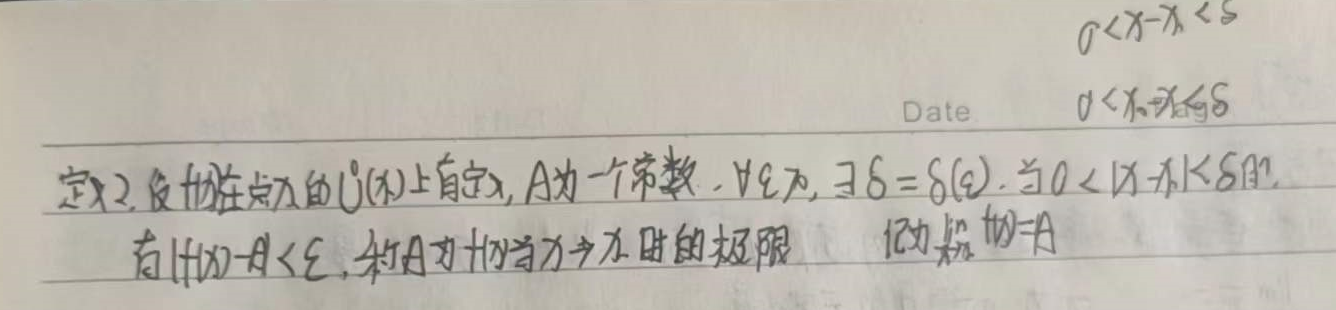 0<x-x₀<δ
Date
0<x₀-x<δ
定义2.设f(x)在点x₀的Ů(x₀)上有定义,A为一个常数.∀ε>0,∃δ=δ(ε).当0<|x-x₀|<δ时,
有|f(x)-A|<ε,称A为f(x)当x→x₀时的极限 记为 lim x→x₀ f(x)=A